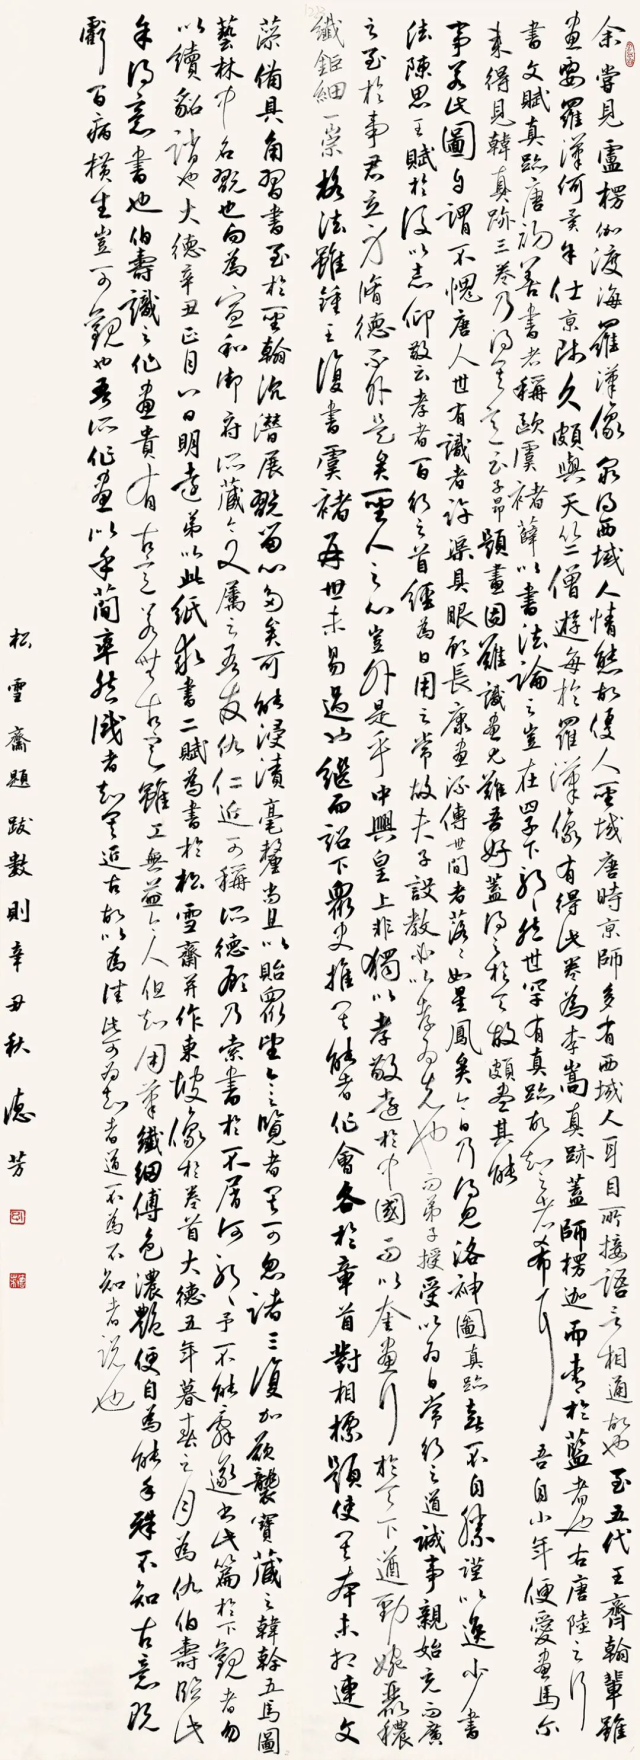 余嘗見盧楞伽渡海羅漢像最得西域人情態故優人聖域唐時京師多有西域人耳目所接語言相通故也至五代王齊翰輩雖
畫要羅漢何異余仕京師久頗與天竺僧遊每於羅漢像有得此卷為李嵩真跡蓋師楞迦而青於藍者也右唐陸之行
書文賦真跡唐初善書者稱歐虞褚薛以書法論之豈在四子下耶然世罕有真跡故知之者希耳吾自小年便愛畫馬爾
來得見韓真跡三卷乃得其意云子昂題畫固難識畫尤難吾好蓋得之於天故頗盡其能
事若此圖自謂不愧唐人世有識者許渠具眼顧長康畫流傳世間者落落如星鳳矣今日乃得見洛神圖真跡喜不自勝謹以逸少書
法陳思王賦於後以志仰敬云孝者百行之首經為日用之常故夫子設教必以孝為先也而弟子授受以為日常行之道誠事親始克而廣
之至於事君立身脩德不外是矣聖人之心豈外是乎中興皇上非獨以孝敬達於中國而以奎畫行於天下遒勁婉麗穠
纖鉅細一宗格法雖鍾王復書虞褚再世未易過此繼而詔下眾史推其能者作會各於章首對相標題使其本末相連文
藻備具角習書至於聖翰沉潛展翫留心多矣可能浸漬毫釐尚且以貽眾今之覽者其可忽諸三復加額襲寶藏之韓幹五馬圖
藝林中名翫也向為宣和御府所藏今又屬之吾友仇仁近可稱所德乃索書於不屑何耶予不能辭遂書此篇於下觀者勿
以續貂誚也大德辛丑正月八日明遠弟以此紙求書二賦為書於松雪齋并作東坡像於卷首大德五年暮春之月為仇伯壽臨此
余得意書也伯壽識之作畫貴有古意若無古意雖工無益今人但知用筆纖細傅色濃艷便自為能手殊不知古意既
虧百病橫生豈可觀也吾所作畫似乎簡率然識者知其近古故以為佳此可為知者道不為不知者說也
松雪齋題跋數則辛丑秋德芳